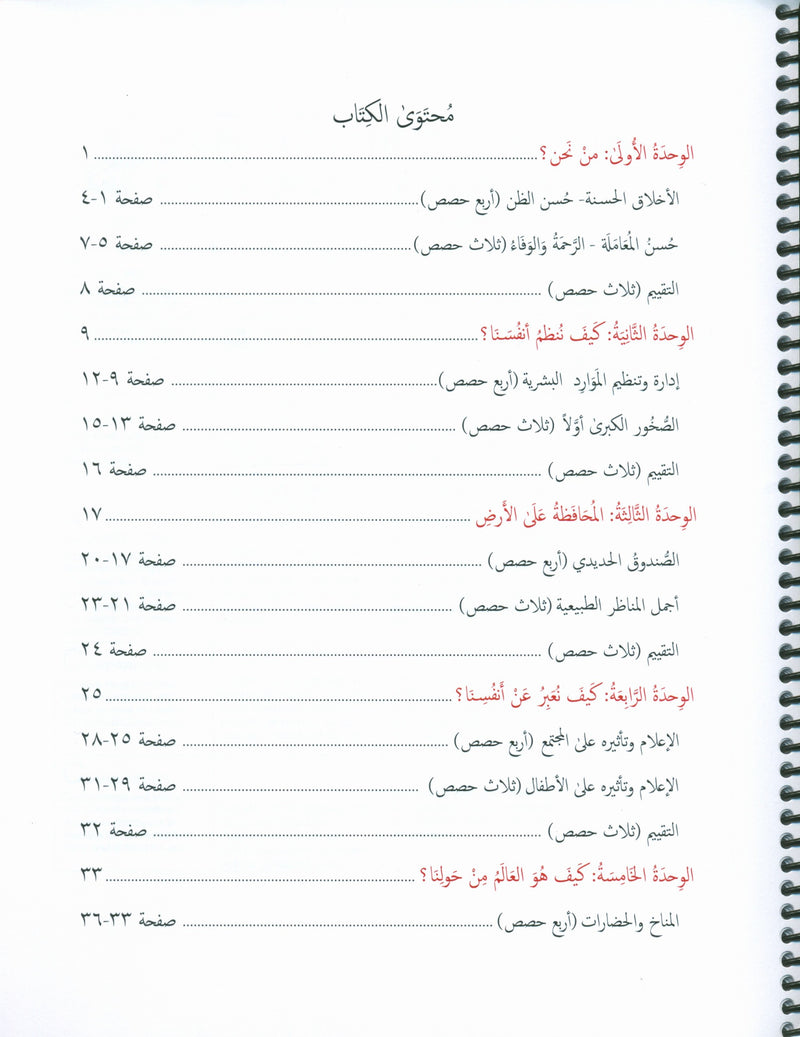 مُحتَوَىٰ الكِتَاب
الوِحدَةُ الأُولَىٰ: مَنْ نَحن؟ ١
الأخلاق الحسنة- حُسن الظن (أربع حصص) صفحة ١-٤
حُسنُ المُعَامَلَة - الرَّحمَةُ وَالوَفَاءُ (ثلاث حصص) صفحة ٥-٧
التقييم (ثلاث حصص) صفحة ٨
الوِحدَةُ الثَّانِيَةُ: كَيفَ نُنظمُ أنفُسَنَا؟ ٩
إدارة وتنظيم المَوَارِد البشرية (أربع حصص) صفحة ٩-١٢
الصُّخُور الكبرىٰ أوَّلاً (ثلاث حصص) صفحة ١٣-١٥
التقييم (ثلاث حصص) صفحة ١٦
الوِحدَةُ الثَّالِثَةُ: المُحَافَظةُ عَلَىٰ الأَرضِ ١٧
الصُّندوقُ الحديدي (أربع حصص) صفحة ١٧-٢٠
أجمل المناظر الطبيعية (ثلاث حصص) صفحة ٢١-٢٣
التقييم (ثلاث حصص) صفحة ٢٤
الوِحدَةُ الرَّابِعَةُ: كَيفَ نُعَبِرُ عَنْ أَنفُسِنَا؟ ٢٥
الإعلام وتأثيره علىٰ المجتمع (أربع حصص) صفحة ٢٥-٢٨
الإعلام وتأثيره علىٰ الأطفال (ثلاث حصص) صفحة ٢٩-٣١
التقييم (ثلاث حصص) صفحة ٣٢
الوِحدَةُ الخَامِسَةُ: كَيفَ هُوَ العَالَمُ مِنْ حَولِنَا؟ ٣٣
المناخ والحضارات (أربع حصص) صفحة ٣٣-٣٦